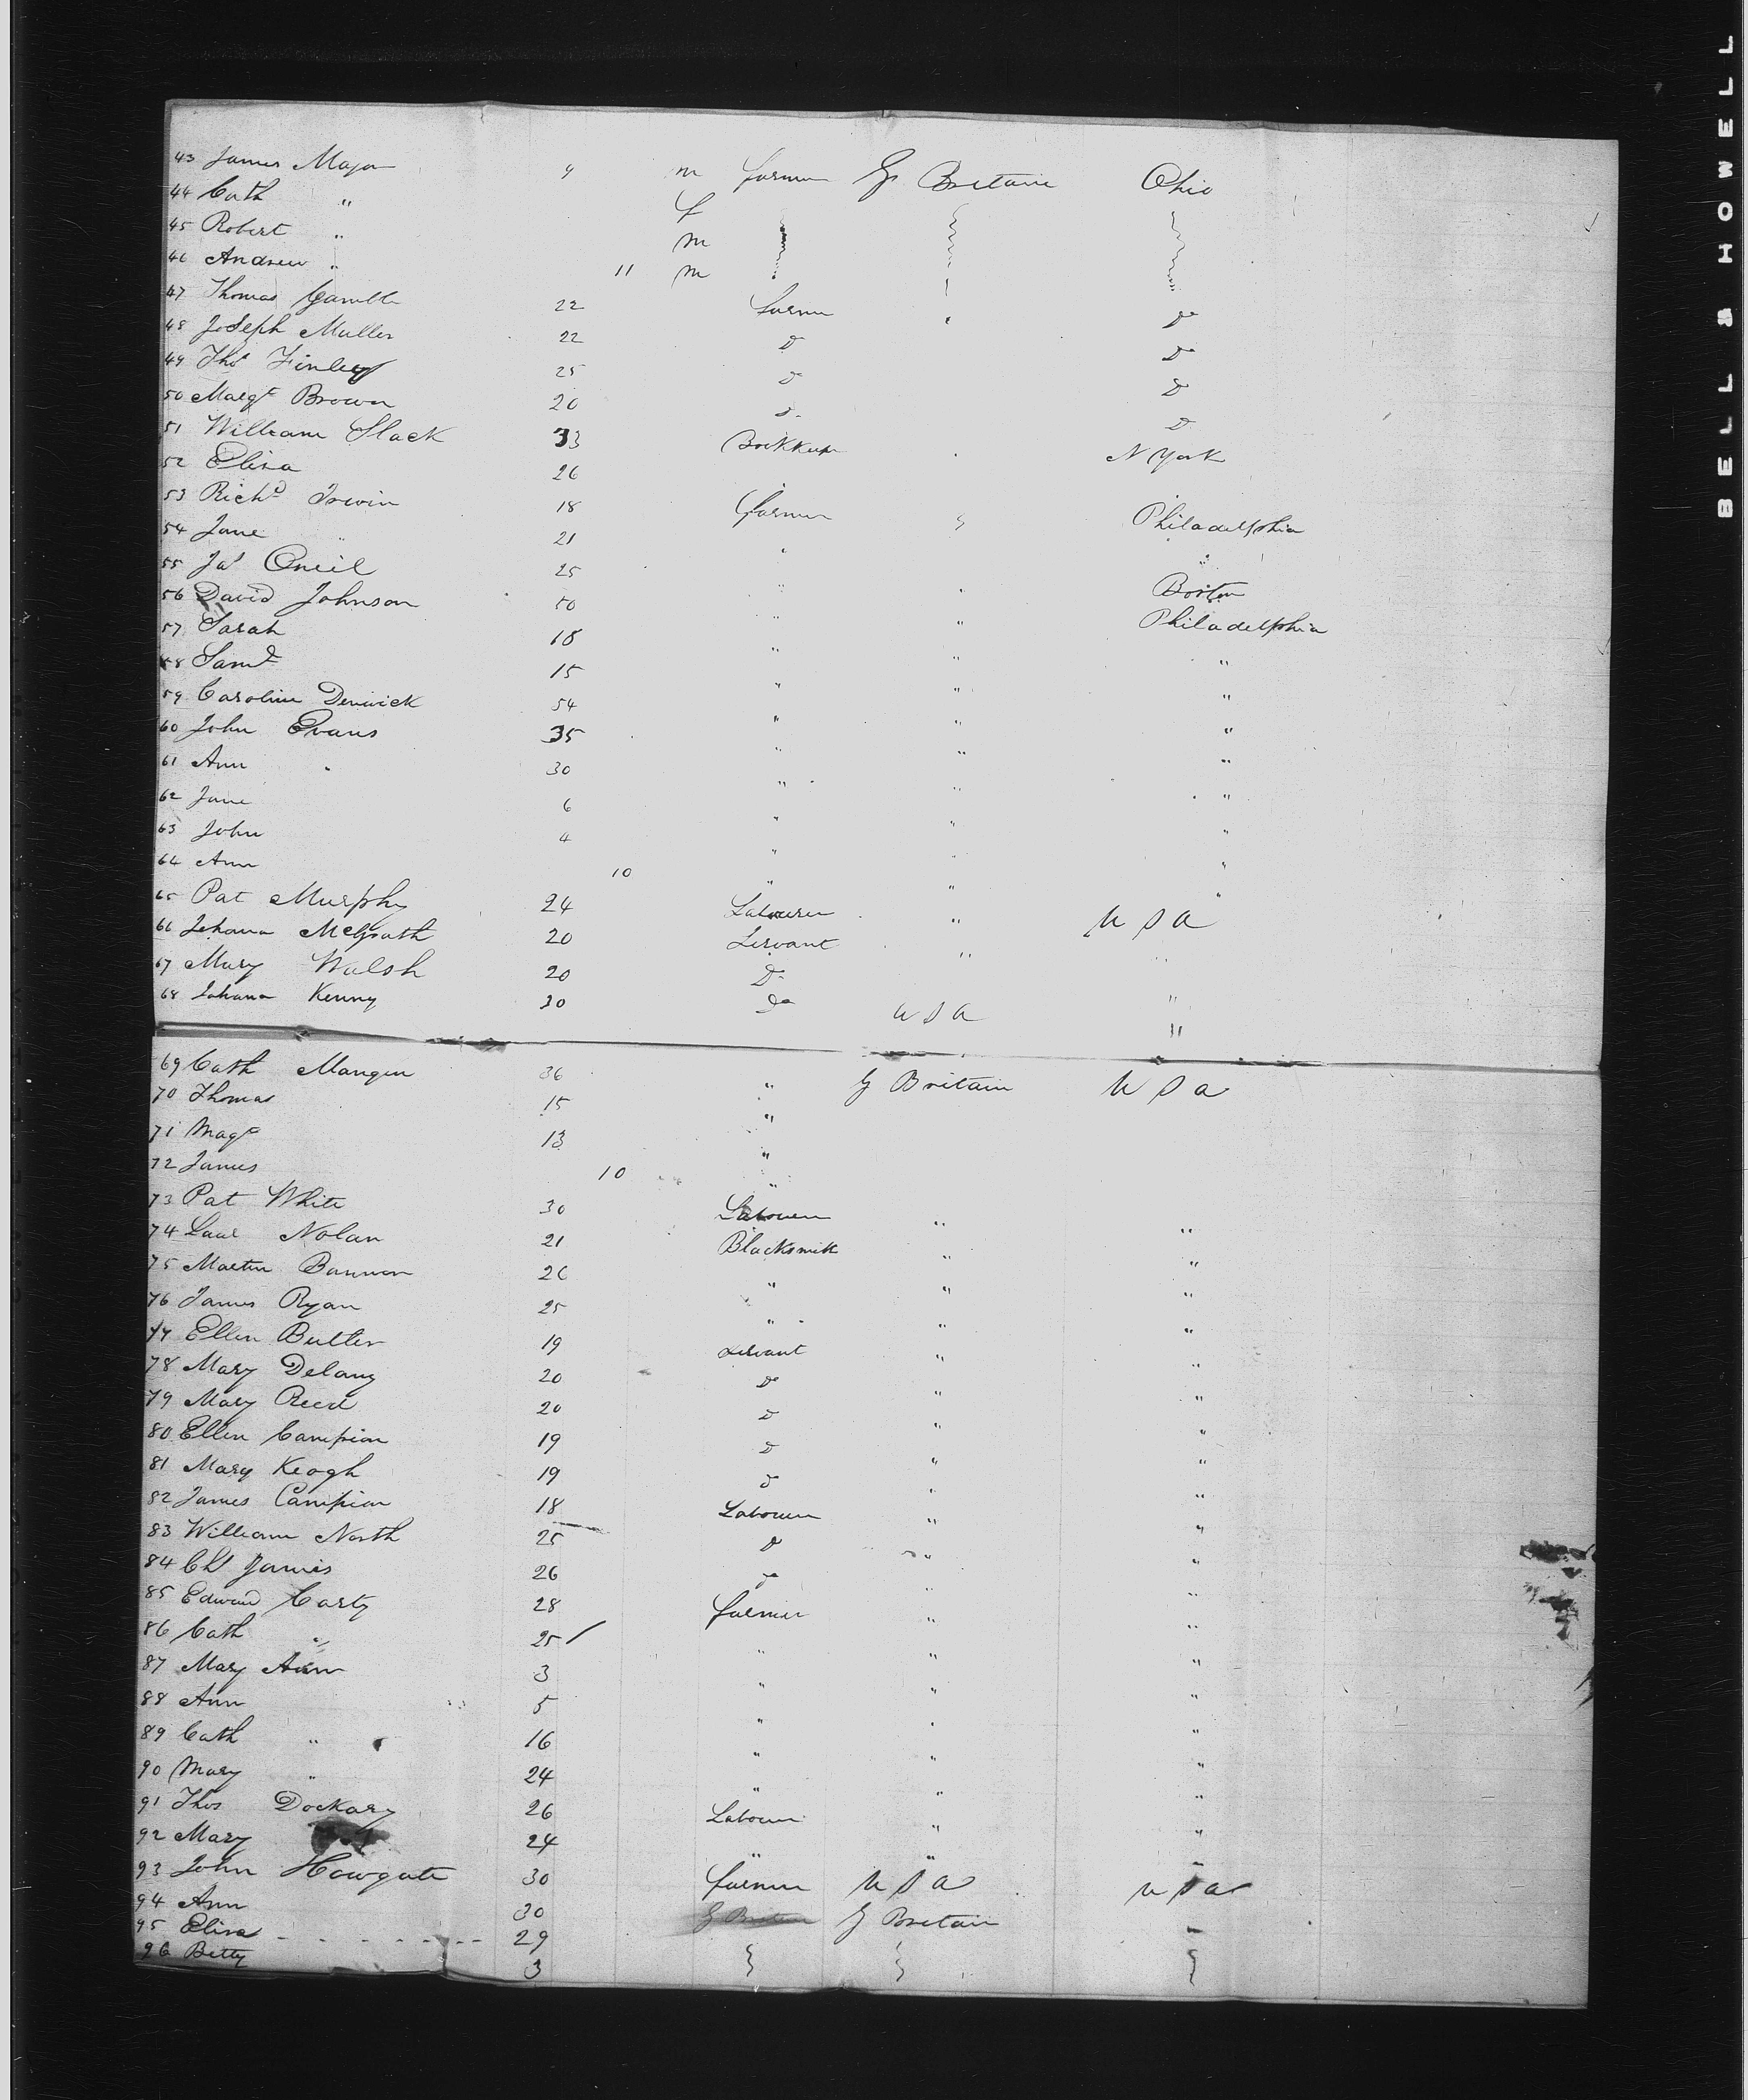 43 James Major 9 m farmer G Britain Ohio
44 Cath " f
45 Robert " m
46 Andrew " 11 m
47 Thomas Gamble 22 farmer Do
48 Joseph Muller 22 Do Do
49 Thos Finley 25 Do Do
50 Margt Brown 20 Do Do
51 William Slack 33 Bookkeeper N York
52 Eliza 26
53 Richd Irwin 18 farmer " Philadelphia
54 Jane " 21 " "
55 Jas Oneil 25 " " Boston
56 David Johnson 50 " " Philadelphia
57 Sarah 18 " " "
58 Saml 15 " " "
59 Caroline 54 " " "
60 John Evans 35 " " "
61 Ann " 30 " " "
62 Jane 6 " " "
63 John 4 " " "
64 Ann 10 " " "
65 Pat Murphy 24 Labourer " U S A
66 Johana McGrath 20 Servant " "
67 Mary Walsh 20 Do "
68 Johana Kenny 30 Do U S A "
69 Cath Mangen 36 " G Britain U S A
70 Thomas 15 "
71 Magt 13 "
72 James 10 "
73 Pat White 30 Labourer " "
74 Nolan 21 Blacksmith " "
75 Martin Bannon 26 " " "
76 James Ryan 25 " " "
77 Ellen Butler 19 Servant " "
78 Mary Delany 20 Do " "
79 Mary Reed 20 Do " "
80 Ellen Campion 19 Do " "
81 Mary Keogh 19 Do " "
82 James Campion 18 Labourer " "
83 William North 25 Do " "
84 James 26 Do " "
85 Edward Carty 28 farmer " "
86 Cath " 25 " " "
87 Mary Ann 3 " " "
88 Ann 5 " " "
89 Cath " 16 " " "
90 Mary " 24 " " "
91 Thos Dockary 26 Labourer " "
92 Mary 24 " " "
93 John Howgate 30 farmer U S A U S A
94 Ann 30 G Britain G Britain "
95 Eliza 29
96 Betty 3
BELL & HOWELL